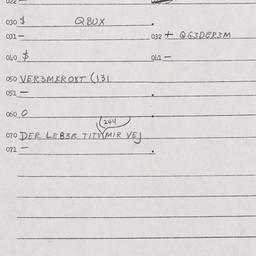 022 —
030 $ QBUX .
031 — 032 + QG3DER3M
040 $ 041 —
050 VER3MEROXT (131
051 —
060 0
(244
070 DER LEB3R TITY(MIR VEJ
071 — .